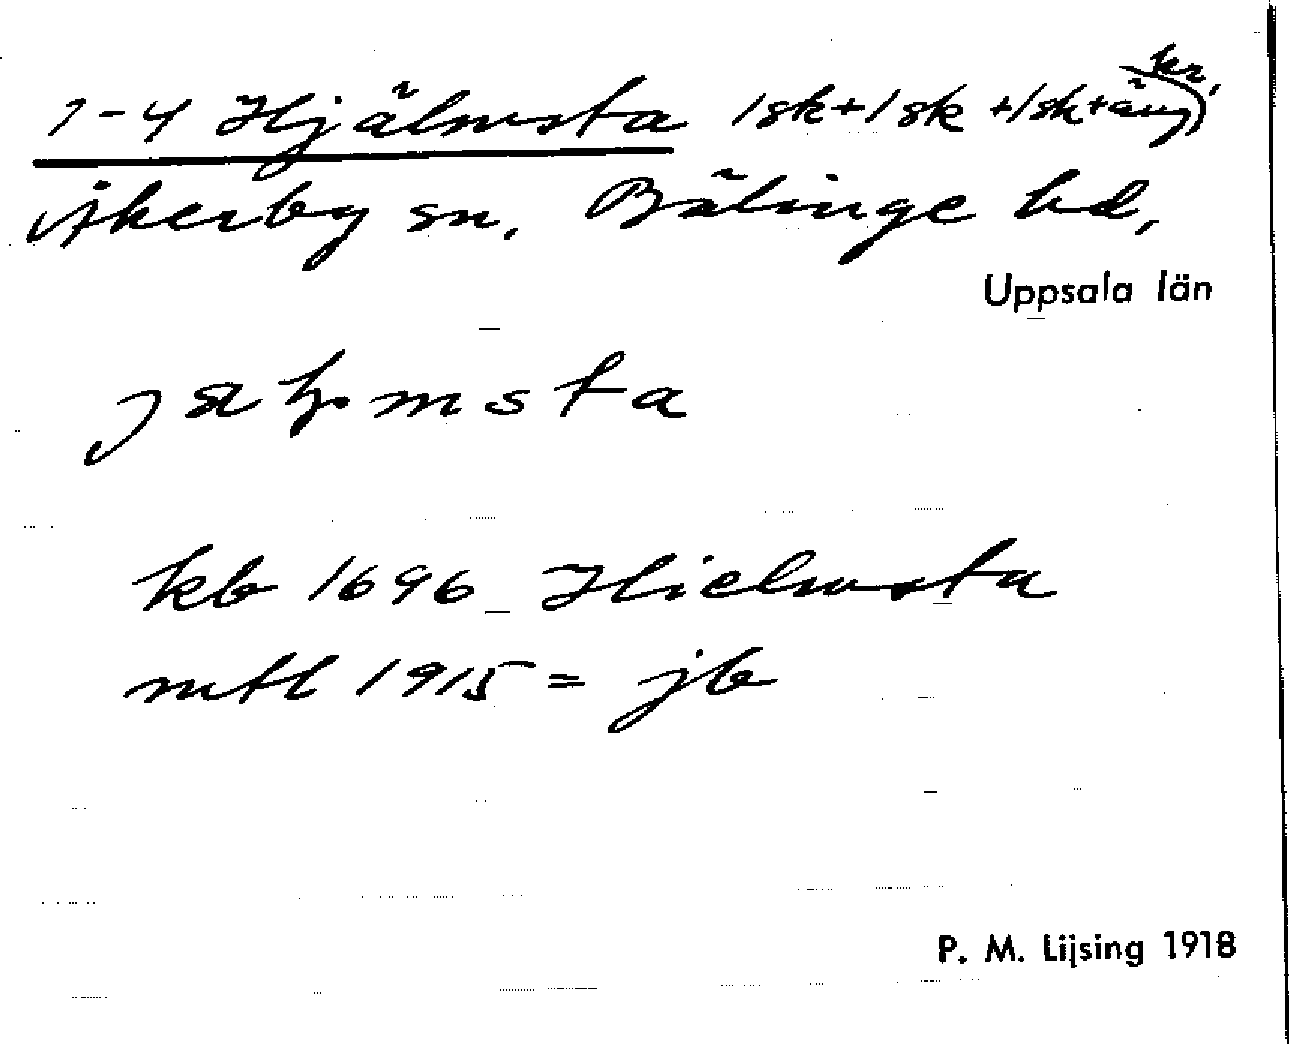 1-4 Hjälmsta 1 sk + 1 sk + 1 sk + äng kr.
Åkerby sn. Bälinge hd,
Uppsala län
kb 1696 Hielmsta
mtl 1915 = jb
P. M. Lijsing 1918